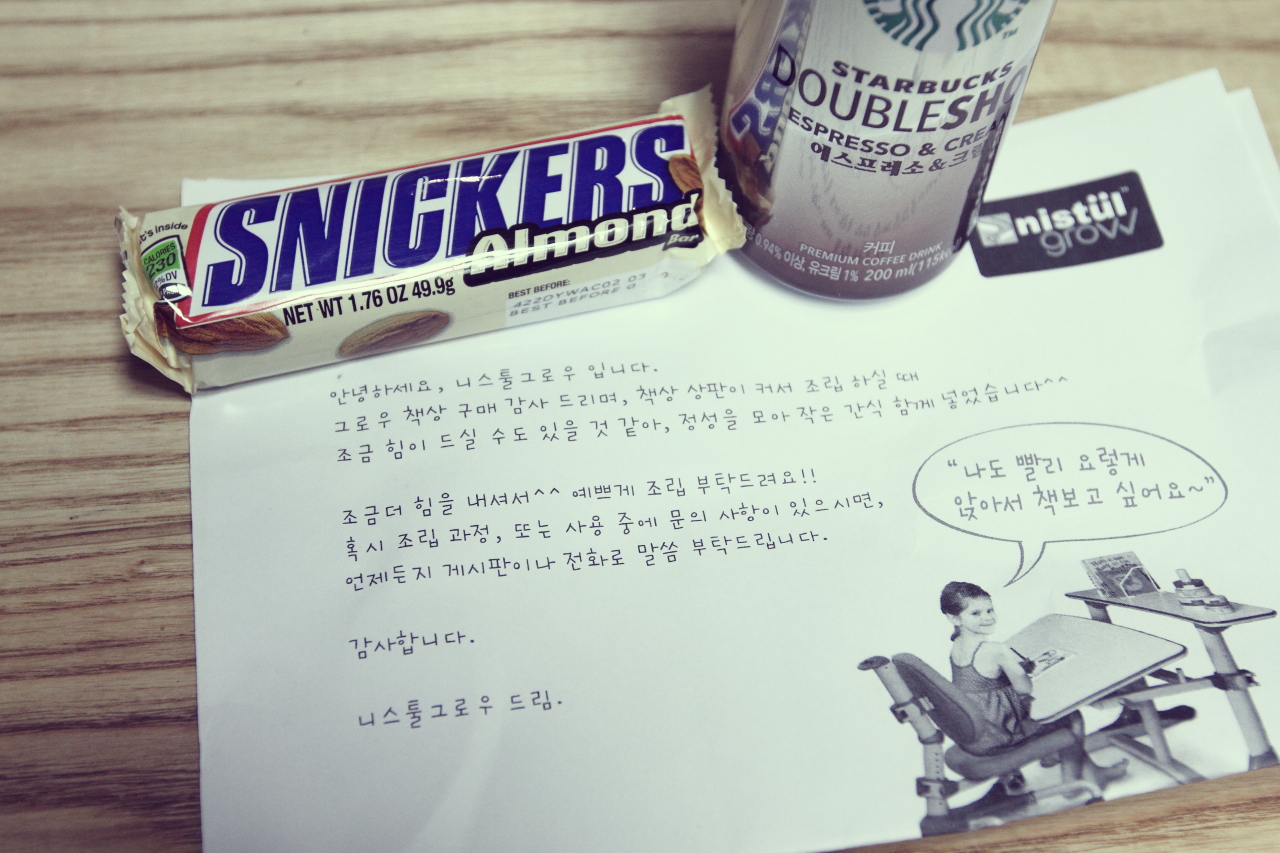 STARBUCKS
DOUBLESHO
ESPRESSO & CREA
에스프레소&크림
커피
PREMIUM COFFEE DRINK
0.94% 이상, 유크림 1% 200 ml(115k
nistül™
grow
it's inside
CALORIES
230
%DV
SNICKERS
Almond
Bar
NET WT 1.76 OZ 49.9g
BEST BEFORE:
422DYWAC02 03
BEST BEFORE
안녕하세요, 니스툴그로우 입니다.
그로우 책상 구매 감사 드리며, 책상 상판이 커서 조립 하실 때
조금 힘이 드실 수도 있을 것 같아, 정성을 모아 작은 간식 함께 넣었습니다^^
조금더 힘을 내셔서^^ 예쁘게 조립 부탁드려요!!
혹시 조립 과정, 또는 사용 중에 문의 사항이 있으시면,
언제든지 게시판이나 전화로 말씀 부탁드립니다.
감사합니다.
니스툴그로우 드림.
“나도 빨리 요렇게
앉아서 책보고 싶어요~”